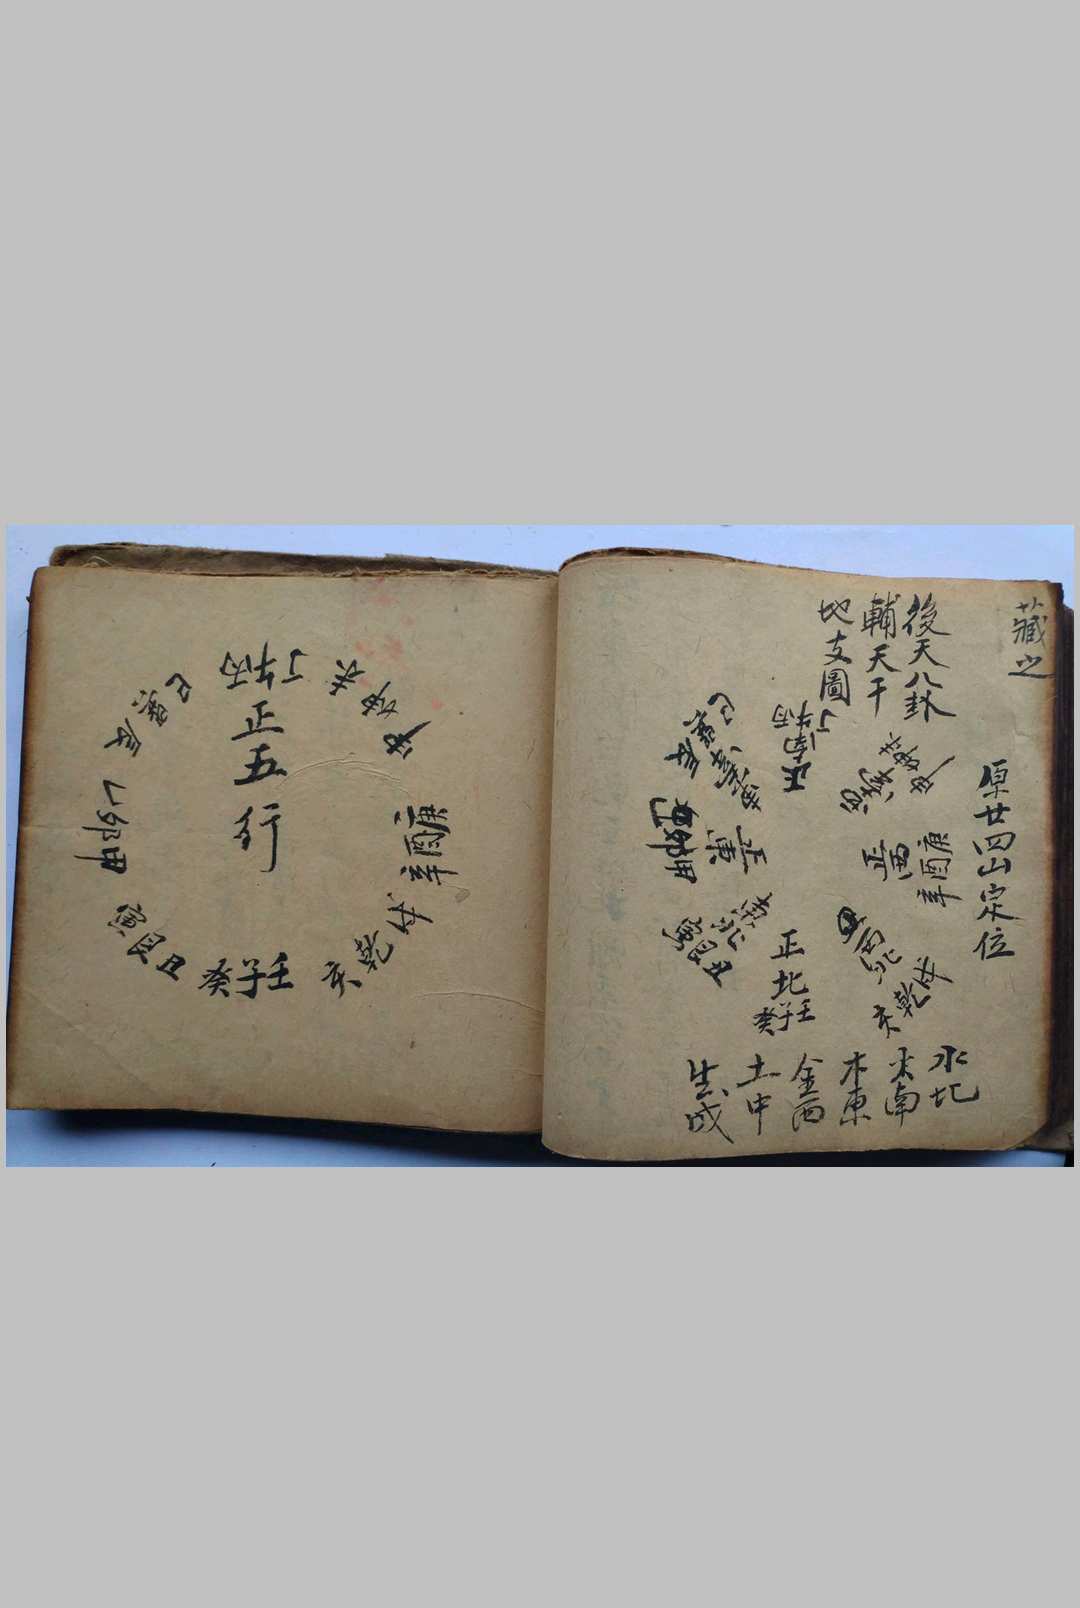 藏之
原廿四山定位
後天八卦
輔天干
地支圖
正南
丙午丁
正西
庚酉辛
西北
戌乾亥
正北
壬子癸
東北
丑艮寅
正東
甲卯乙
辰巽巳
水北
火南
木東
金西
土中
生成
正五行
丙午丁
未坤申
庚酉辛
戌乾亥
壬子癸
丑艮寅
甲卯乙
辰巽巳